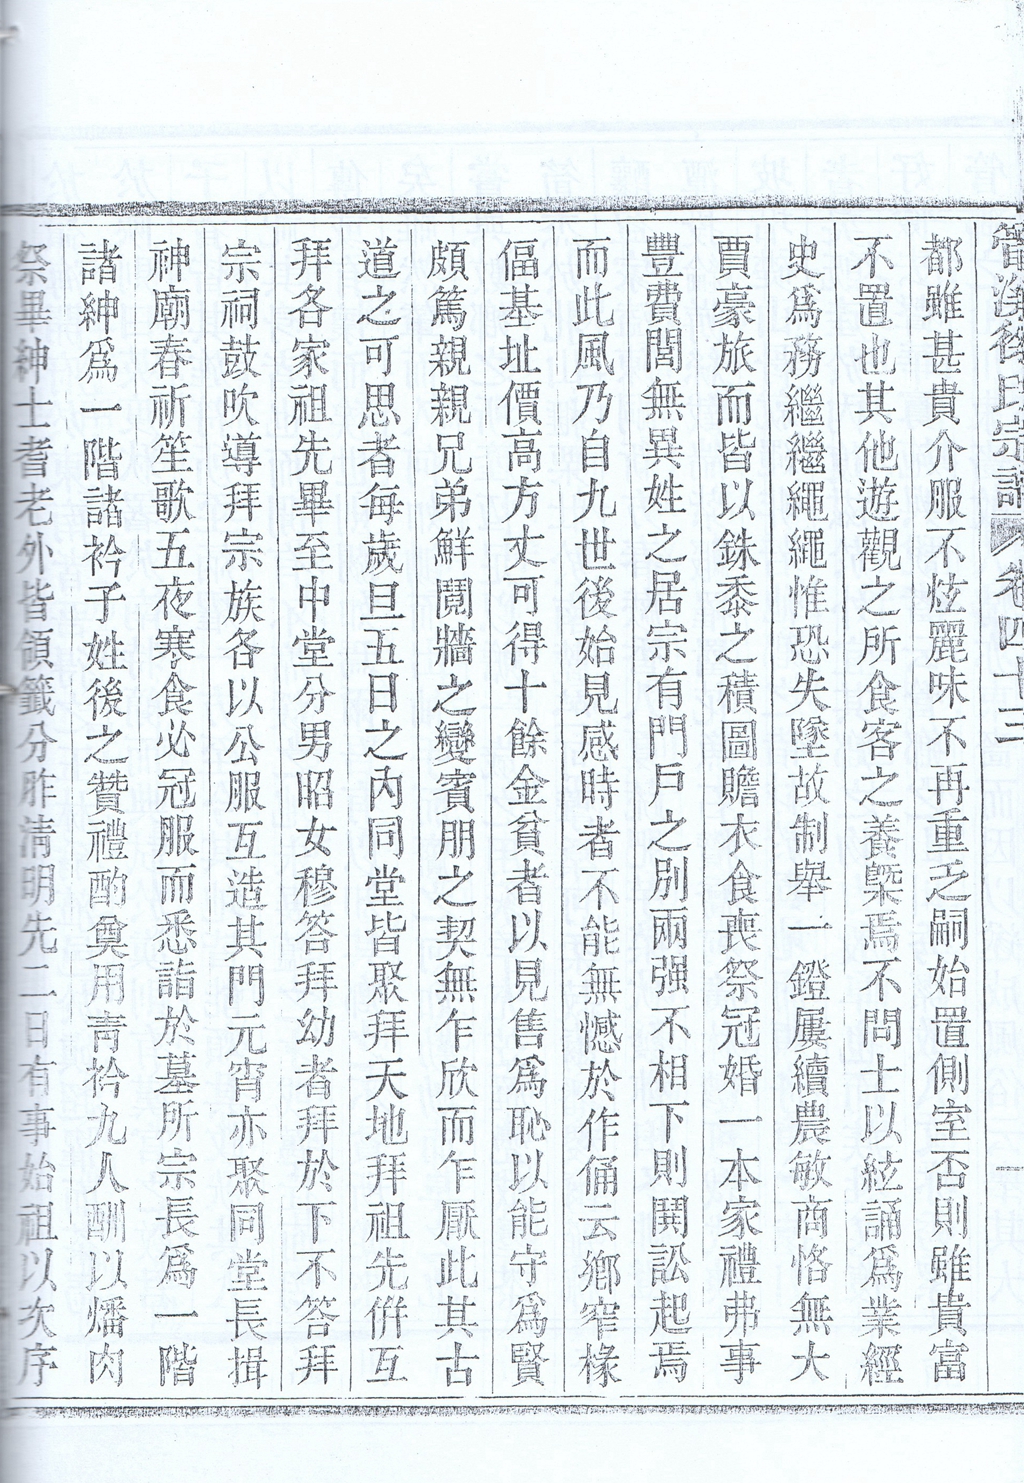 氏宗譜 卷四十三
都雖甚貴介服不炫麗味不再重乏嗣始置側室否則雖貴富
不置也其他遊觀之所食客之養槩焉不問士以絃誦爲業經
史爲務繼繼繩繩惟恐失墜故制舉一鐙屢續農敏商恪無大
賈豪旅而皆以銖黍之積圖贍衣食喪祭冠婚一本家禮弗事
豐費閭無異姓之居宗有門戶之別兩强不相下則鬬訟起焉
而此風乃自九世後始見感時者不能無憾於作俑云鄉窄椽
偪基址價高方丈可得十餘金貧者以見售爲恥以能守爲賢
頗篤親親兄弟鮮鬩牆之變賓朋之契無乍欣而乍厭此其古
道之可思者每歲旦五日之內同堂皆聚拜天地拜祖先倂互
拜各家祖先畢至中堂分男昭女穆答拜幼者拜於下不答拜
宗祠鼓吹導拜宗族各以公服互造其門元宵亦聚同堂長揖
神廟春祈笙歌五夜寒食必冠服而悉詣於墓所宗長爲一階
諸紳爲一階諸衿子姓後之贊禮酌奠用靑衿九人酬以燔肉
祭畢紳士耆老外皆領籤分胙清明先二日有事始祖以次序